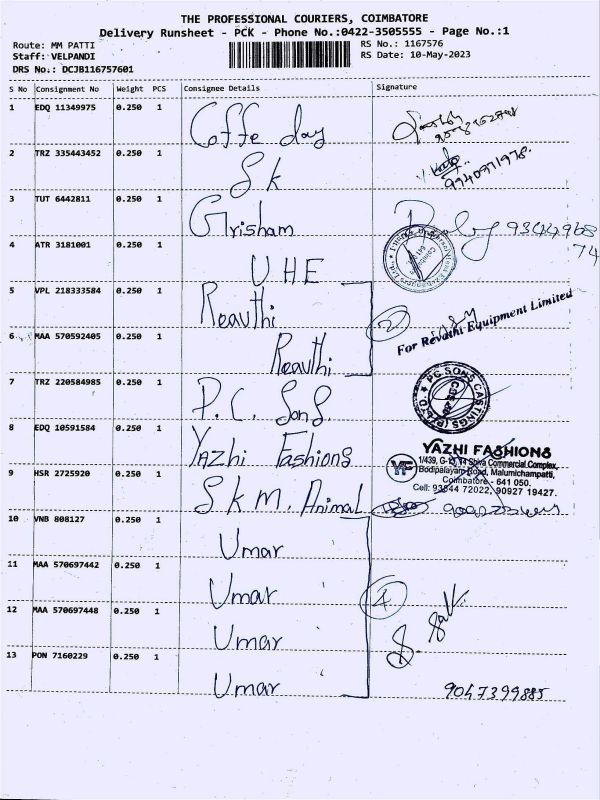 THE PROFESSIONAL COURIERS, COIMBATORE
Delivery Runsheet - PCK - Phone No.:0422-3505555 - Page No.:1
Route: MM PATTI RS No.: 1167576
Staff: VELPANDI RS Date: 10-May-2023
DRS No.: DCJB116757601
S No Consignment No Weight PCS Consignee Details Signature
1 EDQ 11349975 0.250 1 Coffe day
2 TRZ 335443452 0.250 1 Sk
9940971978.
3 TUT 6442811 0.250 1 Grisham
9344968
74
4 ATR 3181001 0.250 1 UHE
5 VPL 218333584 0.250 1 Reavthi
2 For Revathi Equipment Limited
6 MAA 570592405 0.250 1 Reavthi
7 TRZ 220584985 0.250 1 P.C. Sons.
P.C. SONS CASTINGS (P) LTD.
8 EDQ 10591584 0.250 1 Yazhi Fashions
YAZHI FASHIONS
YF 1/439, G-13,14 Shiva Commercial Complex,
Bodipalayam Road, Malumichampatti,
Coimbatore - 641 050.
Cell: 93844 72022, 90927 19427.
9 HSR 2725920 0.250 1 SKM. Animal
10 VNB 808127 0.250 1 Umar
11 MAA 570697442 0.250 1 Umar
4
12 MAA 570697448 0.250 1 Umar
13 PON 7160229 0.250 1 Umar
9047399885